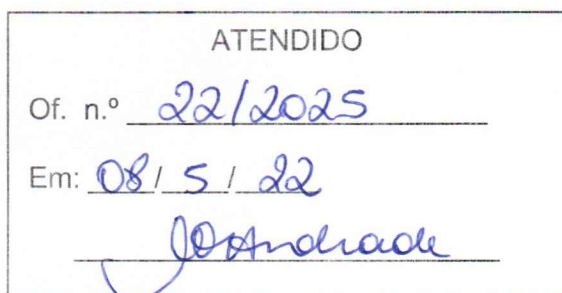 ATENDIDO
Of. n.º 22/2025
Em: 08/ 5 / 22
Andrade